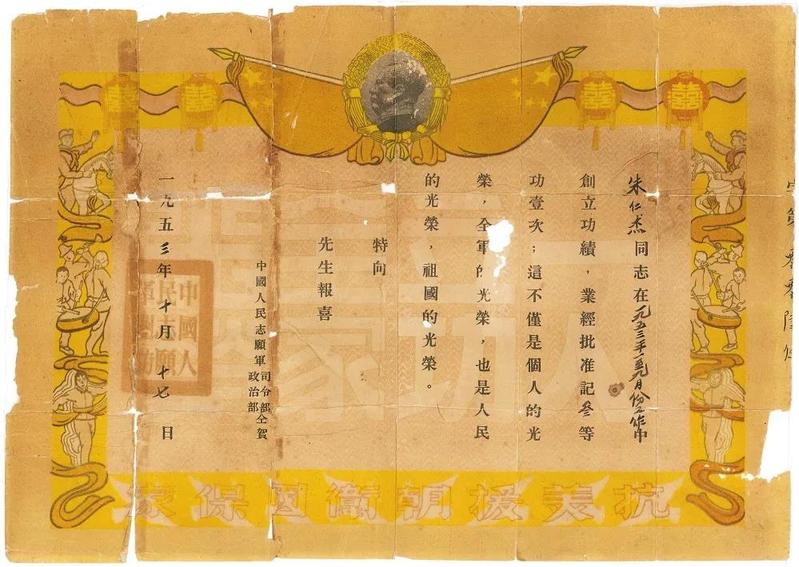 朱仁杰同志在一九五三年一至九月份工作中
創立功績，業經批准記叁等
功壹次；這不僅是個人的光
榮，全軍的光榮，也是人民
的光榮，祖國的光榮。
特向
先生報喜
中國人民志願軍司令部政治部仝賀
一九五三年十月十七日
抗美援朝衛國保家
囍
囍
囍
囍